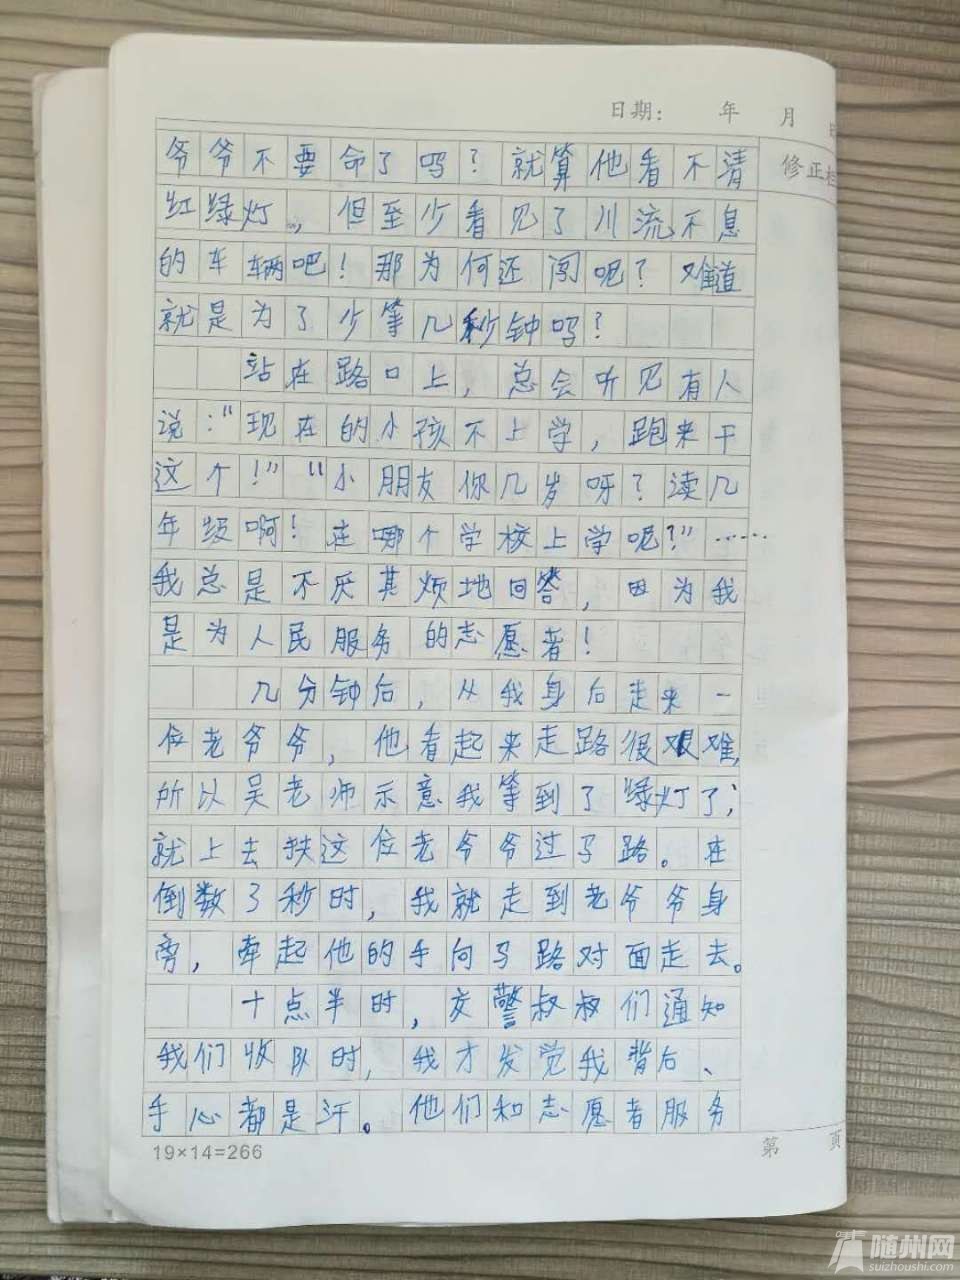 日期： 年 月
修正栏
爷爷不要命了吗？就算他看不清
红绿灯，但至少看见了川流不息
的车辆吧！那为何还闯呢？难道
就是为了少等几秒钟吗？
站在路口上，总会听见有人
说："现在的小孩不上学，跑来干
这个！""小朋友你几岁呀？读几
年级啊！在哪个学校上学呢？"……
我总是不厌其烦地回答，因为我
是为人民服务的志愿者！
几分钟后，从我身后走来一
位老爷爷，他看起来走路很艰难，
所以吴老师示意我等到了绿灯了；
就上去扶这位老爷爷过马路。在
倒数了秒时，我就走到老爷爷身
旁，牵起他的手向马路对面走去。
十点半时，交警叔叔们通知
我们收队时，我才发觉我背后、
手心都是汗。他们和志愿者服务
19×14=266
第 页
随州网
suizhoushi.com